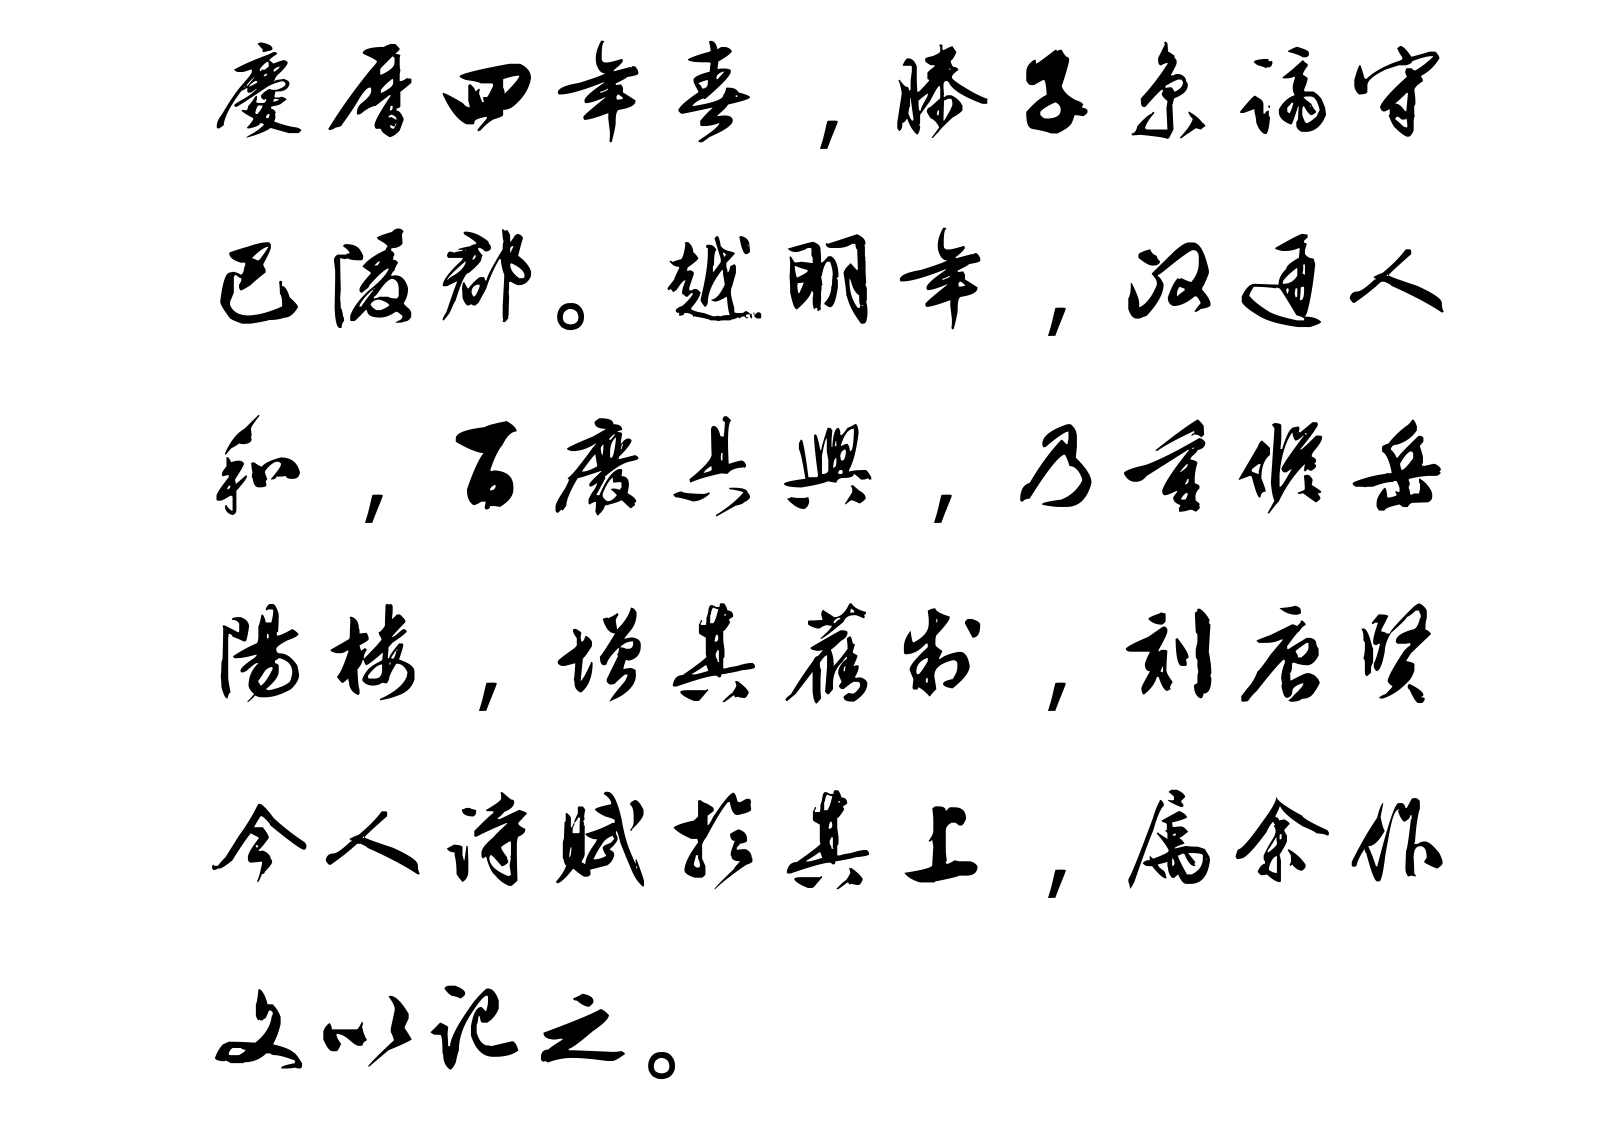 慶曆四年春，滕子京謫守
巴陵郡。越明年，政通人
和，百廢具興，乃重修岳
陽樓，增其舊制，刻唐賢
今人詩賦於其上，屬余作
文以記之。